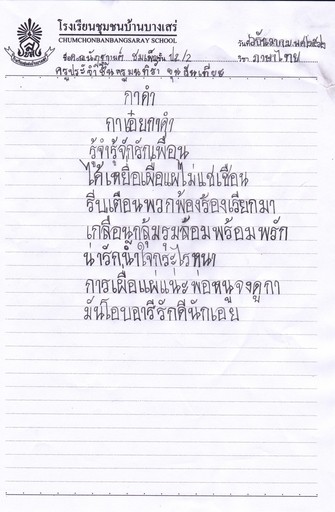 โรงเรียนชุมชนบ้านบางเสร่
CHUMCHONBANBANGSARAY SCHOOL
วันที่
ชื่อ ชั้น ป.5/2 วิชา ภาษาไทย
ครูประจำชั้น
กาดำ
กาเอ๋ยกาดำ
รู้จำรู้จักรักเพื่อน
ได้เหยื่อเผื่อแผ่ไม่แชเชือน
รีบเตือนพวกพ้องร้องเรียกมา
เกลื่อนกลุ้มรุมล้อมพร้อมพรัก
น่ารักน้ำใจกระไรหนา
การเผื่อแผ่แน่ะพ่อหนูจงดูกา
มันโอบอารีรักดีนักเอย